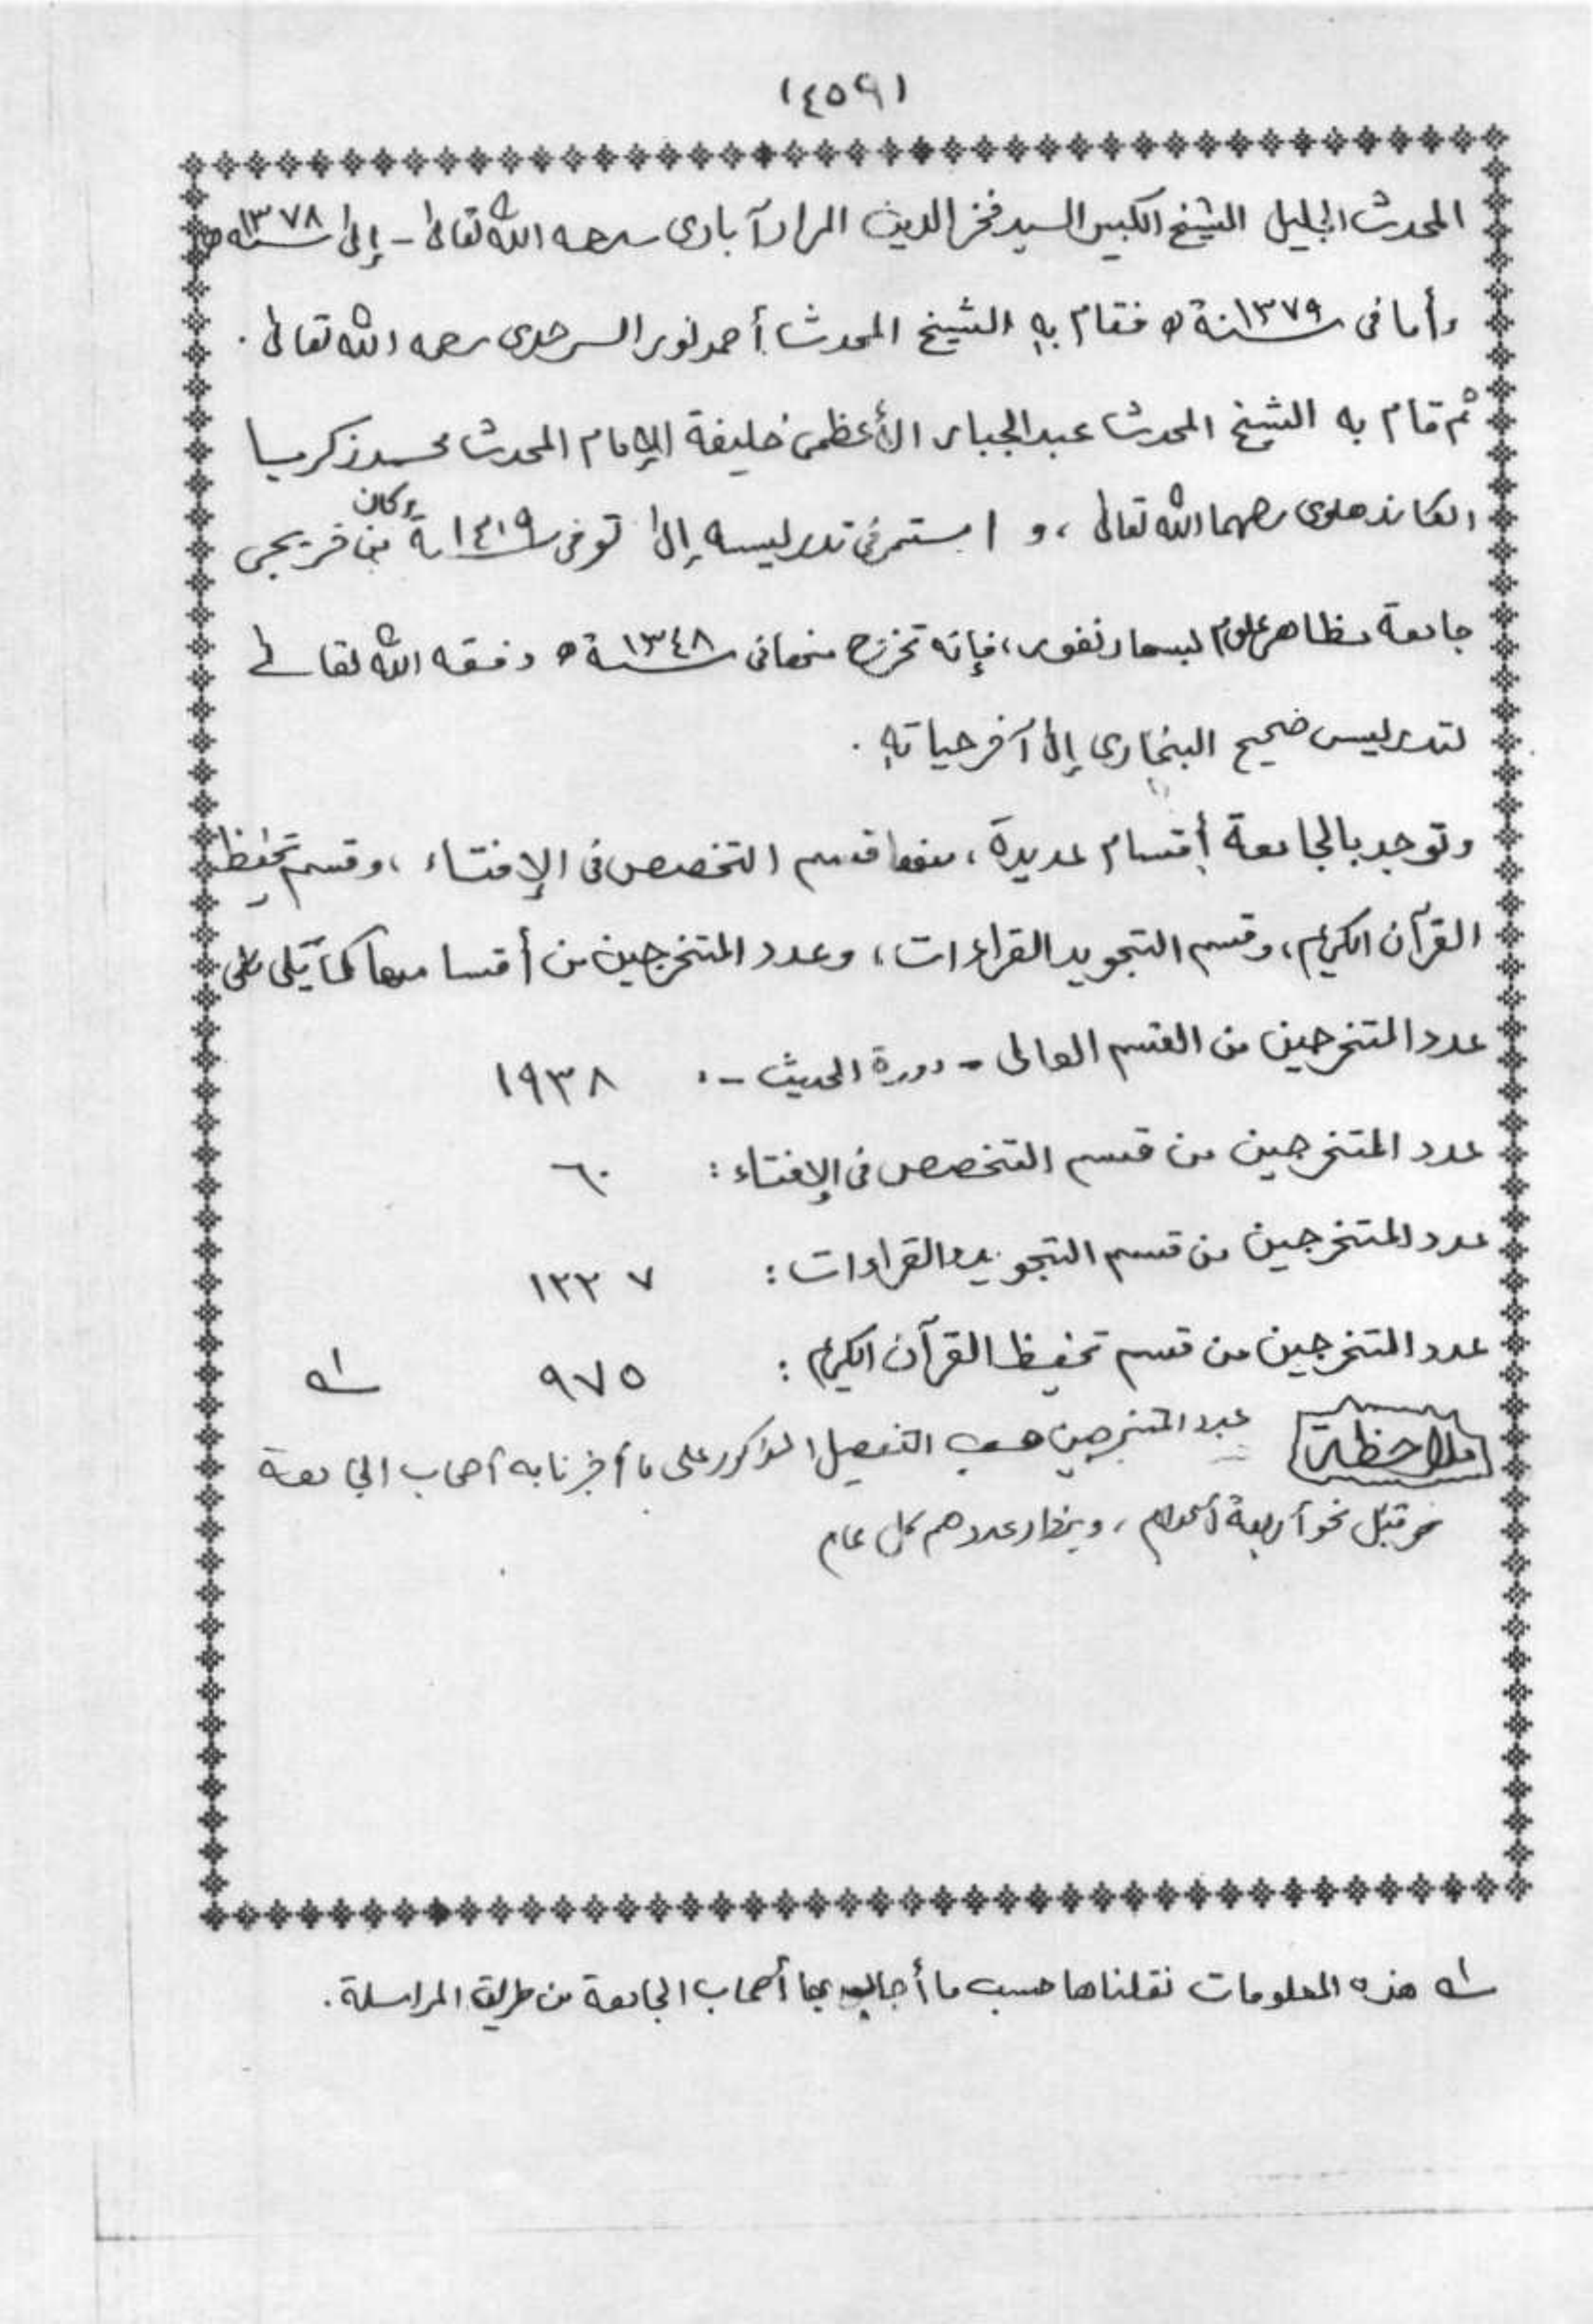 (٤٥٩)
المحدث الجليل الشيخ الكبير السيد فخر الدين المرادآبادى رحمه الله تعالى - إلى سنة ١٣٧٨ه
وأما فى سنة ١٣٧٩ ه فقام به الشيخ المحدث أحمد نور السرحدى رحمه الله تعالى .
ثم قام به الشيخ المحدث عبد الجبار الأعظمى خليفة الإمام المحدث محمد زكريا
الكاندهلوى رحمهما الله تعالى ، و استمر فى تدريسه إلى توفى سنة ١٤١٩ وكان من خريجى
جامعة مظاهر علوم لبسهارنفور، فإنه تخرج منها فى سنة ١٣٤٨ ه وفقه الله تعالى
لتدريس صحيح البخارى إلى آخر حياته .
وتوجد بالجامعة أقسام عديدة ، منها قسم التخصص فى الإفتاء ، وقسم تحفيظ
القرآن الكريم، وقسم التجويد القراءات ، وعدد المتخرجين من أقسامها كما يلى
عدد المتخرجين من القسم العالى - دورة الحديث - : ١٩٣٨
عدد المتخرجين من قسم التخصص فى الإفتاء : ٦٠
عدد المتخرجين من قسم التجويد والقراءات : ١٢٢٧
عدد المتخرجين من قسم تحفيظ القرآن الكريم : ٩٧٥ ا؎
ملاحظة عدد المتخرجين حسب التفصيل المذكور على ما أخبرنا به أصحاب الجامعة
من قبل نحو أربعة أعوام ، ويزداد عددهم كل عام
ا؎ هذه المعلومات نقلناها حسب ما أجاب بها أصحاب الجامعة من طريق المراسلة .